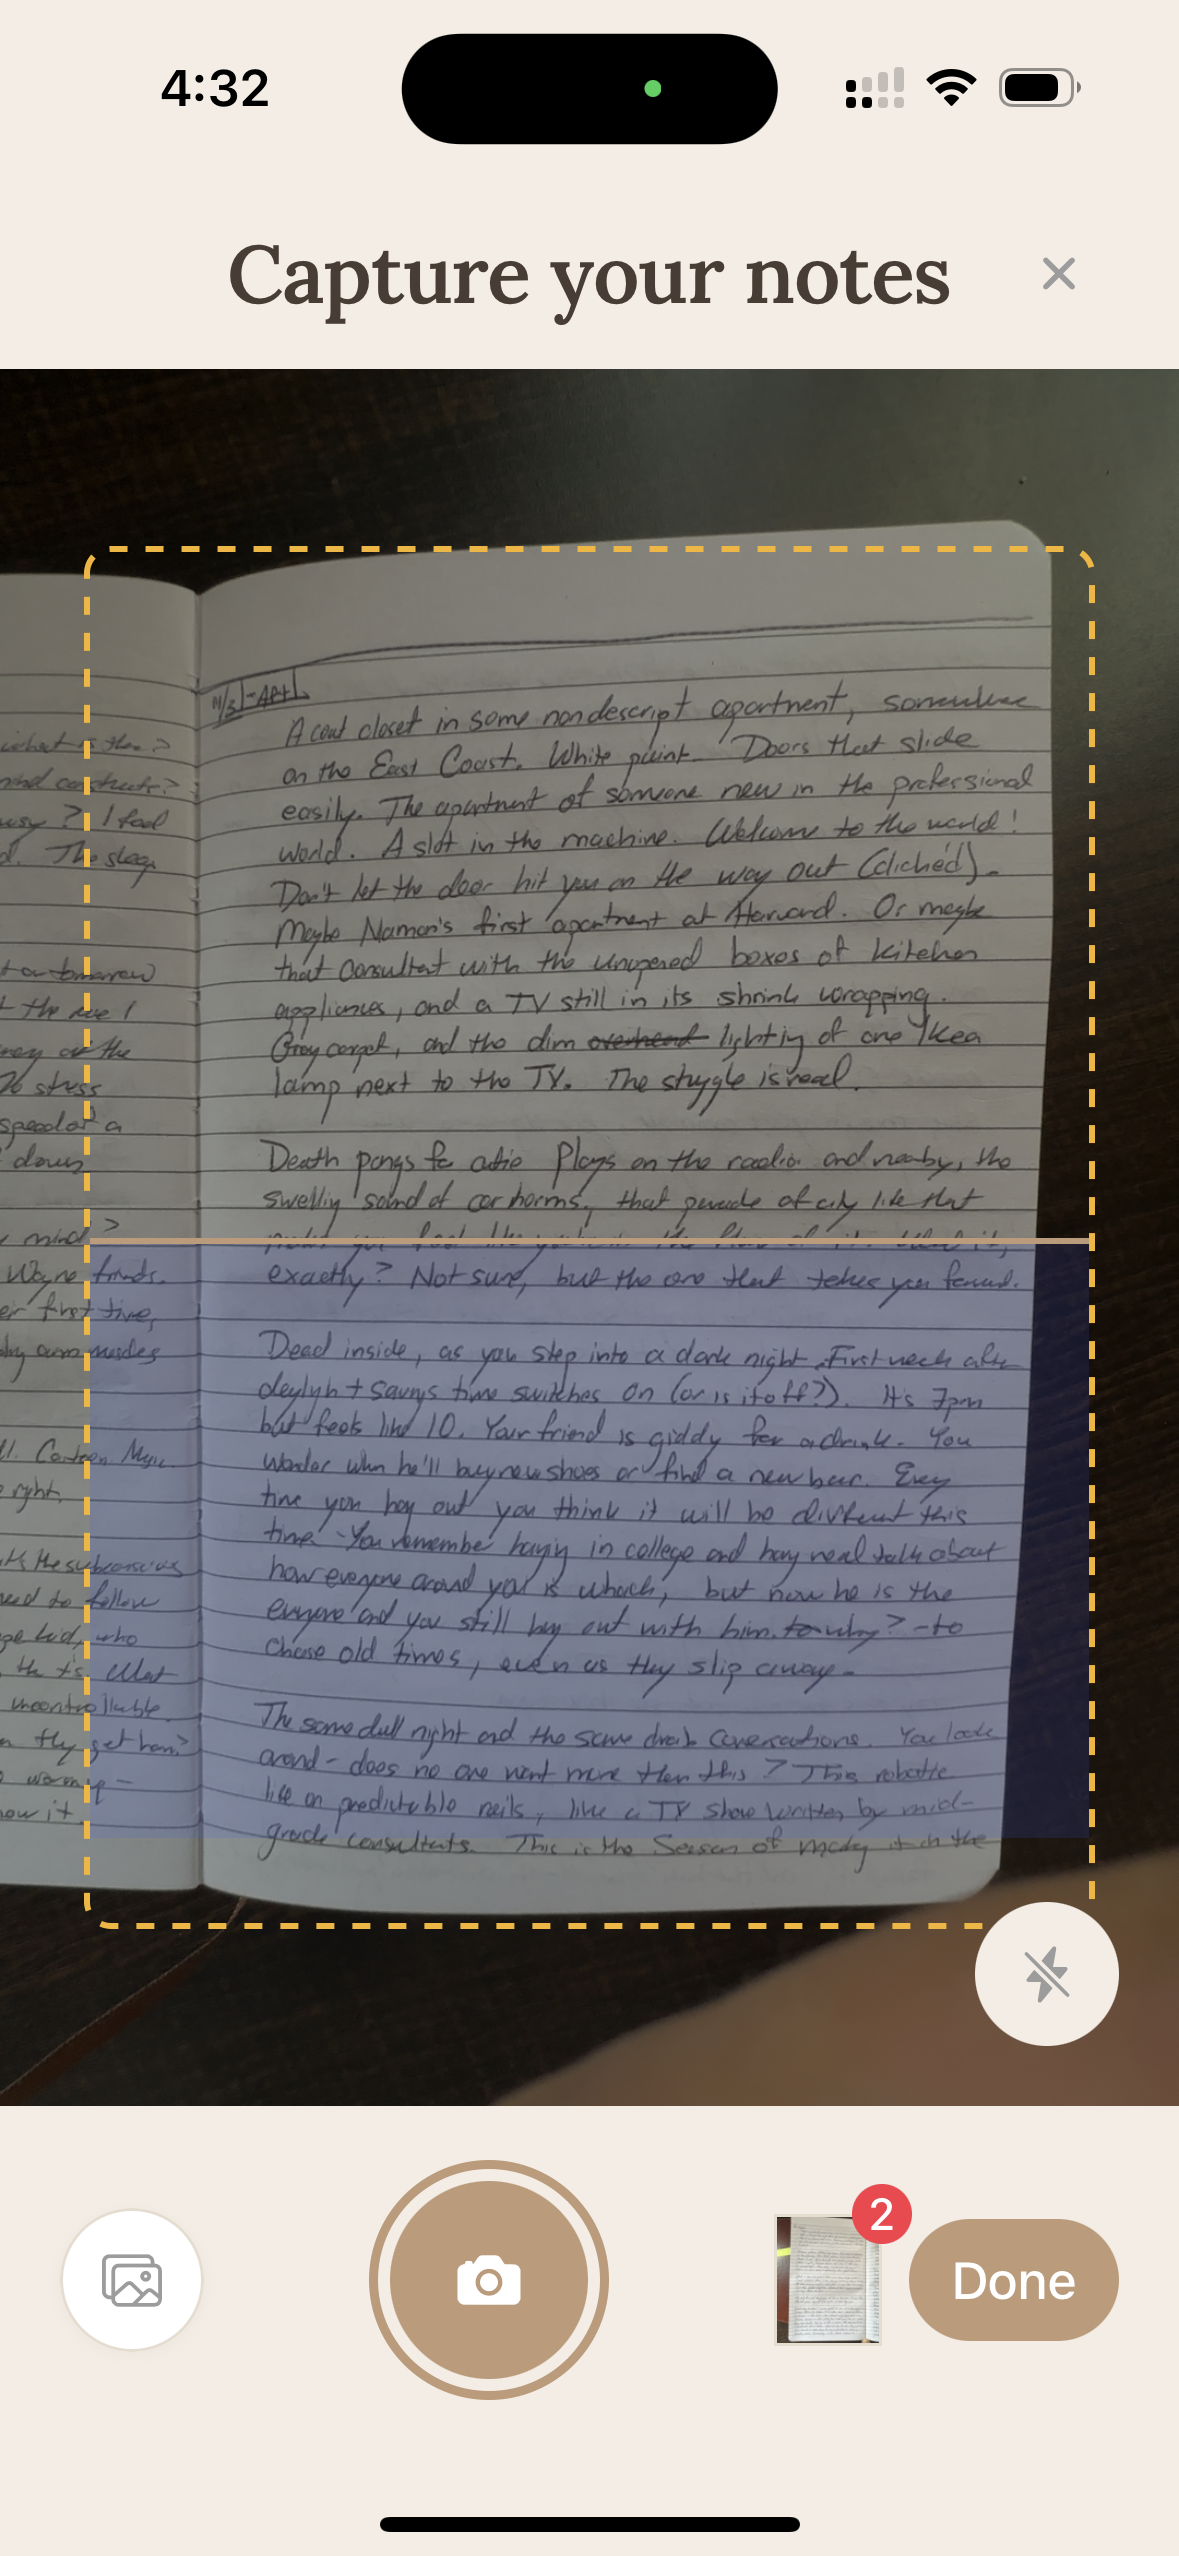 4:32
Capture your notes
11/3 - Apt
A coat closet in some nondescript apartment, somewhere
on the East Coast. White paint. Doors that slide
easily. The apartment of someone new in the professional
world. A slot in the machine. Welcome to the world!
Don't let the door hit you on the way out (clichéd).
Maybe Naman's first apartment at Harvard. Or maybe
that consultant with the unopened boxes of kitchen
appliances, and a TV still in its shrink wrapping.
Gray carpet, and the dim overhead lighting of one Ikea
lamp next to the TV. The struggle is real.
Death pangs plays on the radio and nearby, the
swelling sound of car horns, that city like that
you feel like the of it. What is it,
exactly? Not sure, but the one that takes you forward.
Dead inside, as you step into a dark night. First week after
daylight savings time switches on (or is it off?). It's 7pm
but feels like 10. Your friend is giddy for a drink. You
wonder when he'll buy new shoes or find a new bar. Every
time you hang out you think it will be different this
time - You remember hanging in college and having real talk about
how everyone around you is whack, but now he is the
everyone and you still hang out with him. to why? - to
chase old times, even as they slip away -
The same dull night and the same drab conversations. You look
around - does no one want more than this? This robotic
life on predictable rails, like a TV show written by mid-
grade consultants. This is the Season of the
what is then?
mind constructs?
? I feel
The sleep
tomorrow
the me I
of the
stress
a
down
mind >
Wayne friends.
first time,
own
Cartoon Music.
right.
the subconscious
need to follow
kid, who
the t's. What
uncontrollable.
they get ham?
warm up -
now it.
2
Done